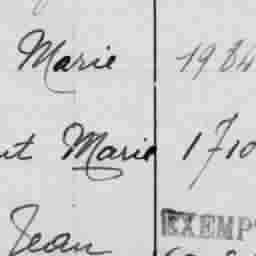 Marie 1984
ut Marie 1710
Jean EXEMP